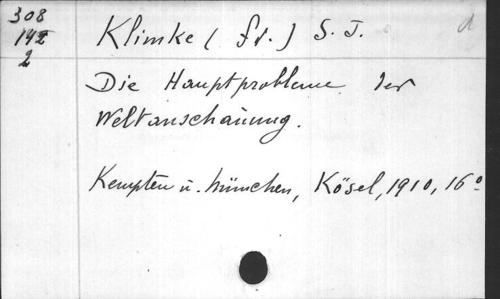 308
142
2
Klimke (Fr.) S. J.
Die Hauptprobleme der
Weltanschauung.
Kempten u. München, Kösel, 1910, 16°